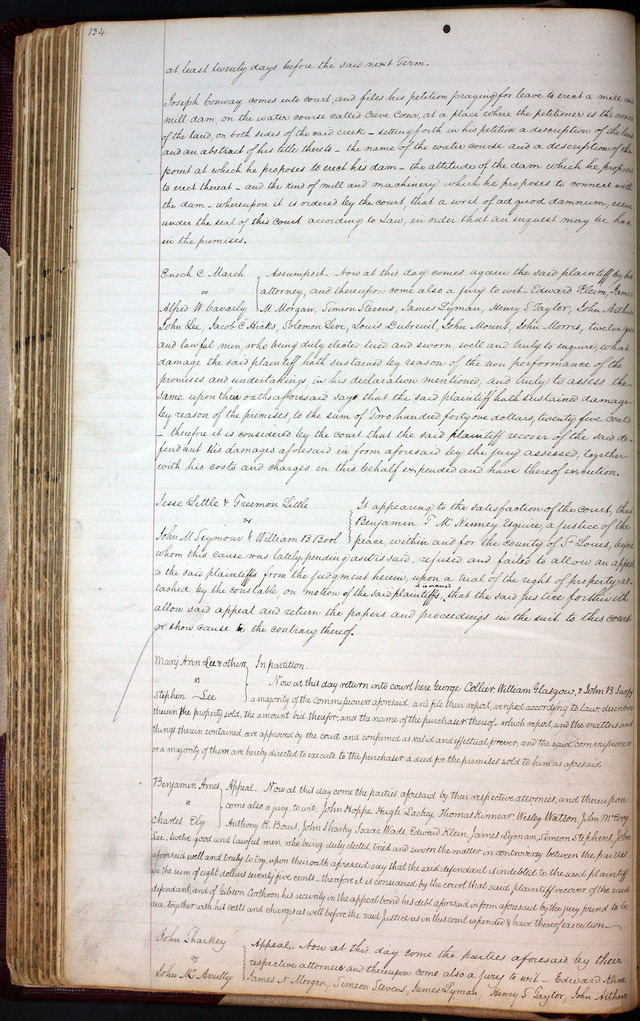 134
at least twenty days before the said next Term.
Joseph Conway comes into court, and files his petition praying for leave to erect a mill and
mill dam, on the water course called Creve Coeur, at a place where the petitioner is the owner
of the land, on both sides of the said creek – setting forth in his petition a description of the land
and an abstract of his title thereto – the name of the water course and a description of the
point at which he proposes to erect his dam – the altitude of the dam which he proposes
to erect thereat – and the kind of mill and machinery which he proposes to connect with
the dam – whereupon it is ordered by the court, that a writ of ad quod damnum, issue
under the seal of this court according to Law, in order that an inquest may be had
in the premises.
Enoch C March Assumpsit. Now at this day comes again the said plaintiff by his
vs attorney, and thereupon come also a jury to wit. Edward Klein, James
Alfred W Cavarly M Morgan, Simeon Stevens, James Lyman, Henry S Taylor, John Arthur
John Lee, Jacob C Hicks, Solomon Leve, Louis Dubreuil, John Mount, John Morris, twelve good
and lawful men, who being duly elected tried and sworn, well and truly to enquire, what
damage the said plaintiff hath sustained by reason of the non performance of the
promises and undertakings, in his declaration mentioned, and truly to assess the
same upon their oaths aforesaid say that the said plaintiff hath sustained damage
by reason of the premises, to the sum of Two hundred forty one dollars, twenty five cents
– therefore it is considered by the court that the said plaintiff recover of the said de-
fendant his damages aforesaid in form aforesaid by the jury assessed, together
with his costs and charges in this behalf expended and have thereof execution.
Jesse Little & Freemon Little It appearing to the satisfaction of the court, that
vs Benjamin T McKinney Esquire, a justice of the
John M Seymour & William B Bool peace, within and for the county of St Louis, before
whom this cause was lately pending as it is said, refused and failed to allow an appeal
to the said plaintiffs from the judgment herein, upon a trial of the right of property at-
tached by the constable, on motion of the said plaintiffs, it is ordered that the said justice forthwith
allow said appeal and return the papers and proceedings in the suit to this court
or show cause to the contrary thereof.
Mary Ann Lee & others In partition.
vs Now at this day return into court here George Collier William Glasgow, & John B Sarpy
Stephen Lee a majority of the commissioners aforesaid, and file their report, verified according to law, describing
therein the property sold, the amount bid therefor, and the name of the purchaser thereof. which report, and the matters and
things therein contained, are approved by the court and confirmed as valid and effectual forever, and the said commissioners
or a majority of them are hereby directed to execute to the purchaser a deed for the premises sold to him as aforesaid
Benjamin Ames Appeal. Now at this day come the parties aforesaid by their respective attornies, and thereupon
vs come also a jury, to wit. John Hoppe Hugh Lackey, Thomas Kinnear, Wesley Watson, John McEvoy
Charles Ely Anthony H. Bouis, John Sharky Isaac Wade, Edward Klein, James Lyman, Simeon Stephens, John
Lee, twelve good and lawful men, who being duly elected, tried and sworn the matter in controversy between the parties
aforesaid well and truly to try, upon their oath aforesaid say that the said defendant is indebted to the said plaintiff
in the sum of eight dollars seventy five cents – therefore it is considered by the court that said plaintiff recover of the said
defendant, and of Gibson Corthron his security in the appeal bond his debt aforesaid in form aforesaid by the jury found to be
due, together with his costs and charges as well before the said Justice as in this court expended & have thereof execution.
John Sharkey Appeal. Now at this day come the parties aforesaid by their
vs respective attornies and thereupon come also a jury to wit – Edward Kline
John McAnulty James N. Morgan, Simeon Stevens, James Lyman, Henry S Taylor, John Arthur